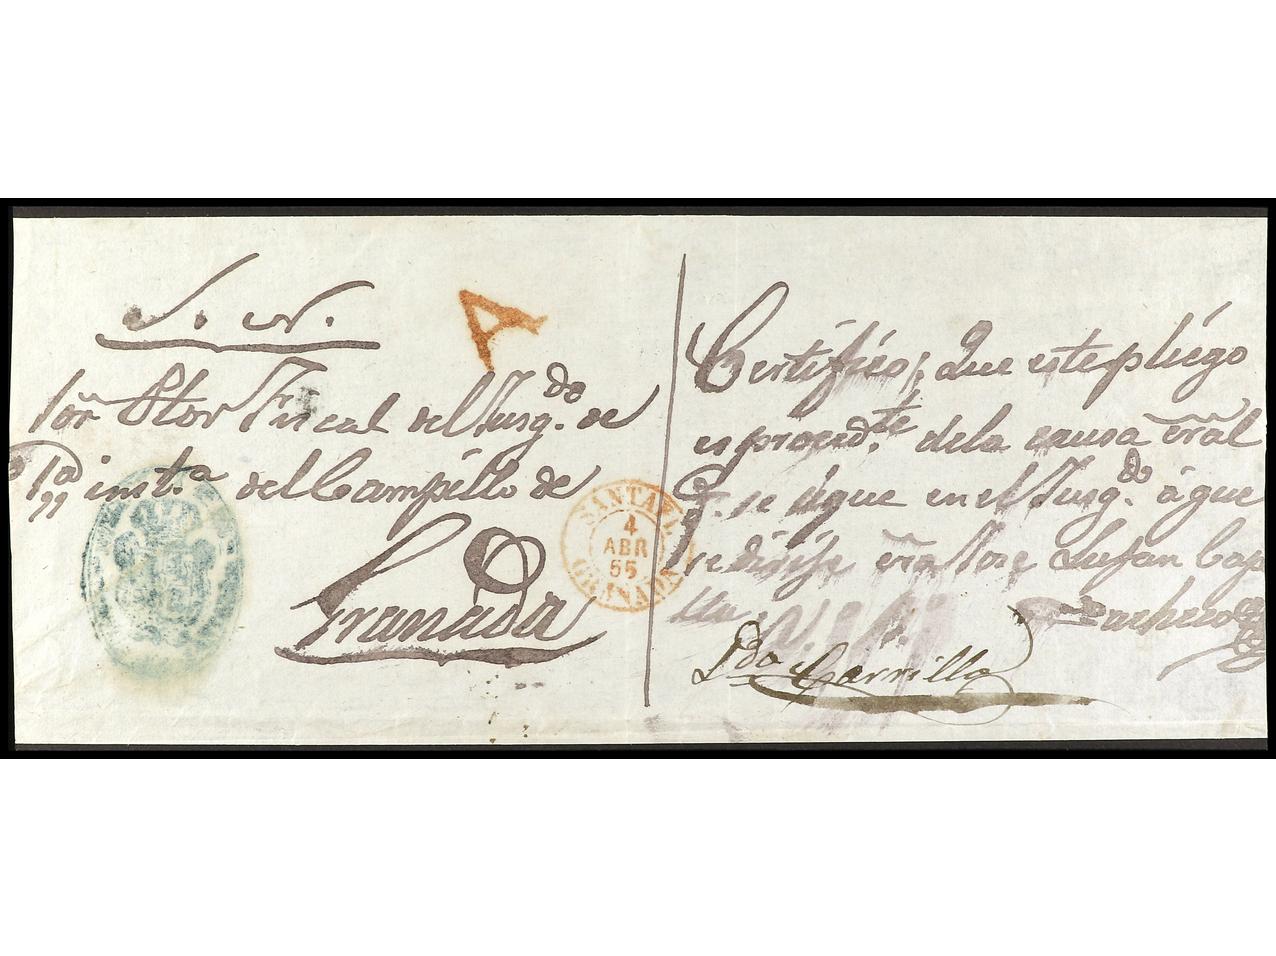 S. N.
A
Sor. Ptor Fiscal del Jusg.do de
1a inst.a del Campillo de
Granada
SANTAFÉ
4
ABR
55
GRANADA
Certifico; Que este pliego
es proced.te de la causa crãl
q.e se sigue en el Jusg.do á que
se dirije contra Jose Lujan
Pacheco
Ldo Carrillo